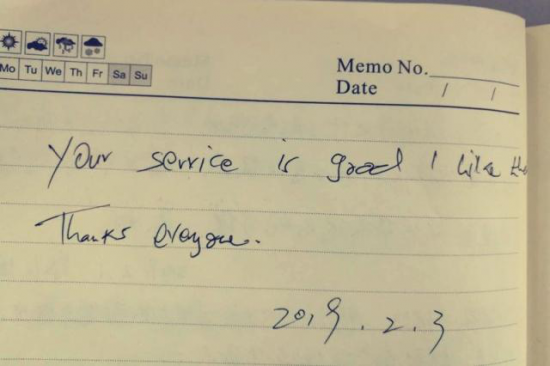 Mo Tu We Th Fr Sa Su
Memo No.
Date / /
Your service is good I like the
Thanks everyone.
2019.2.3